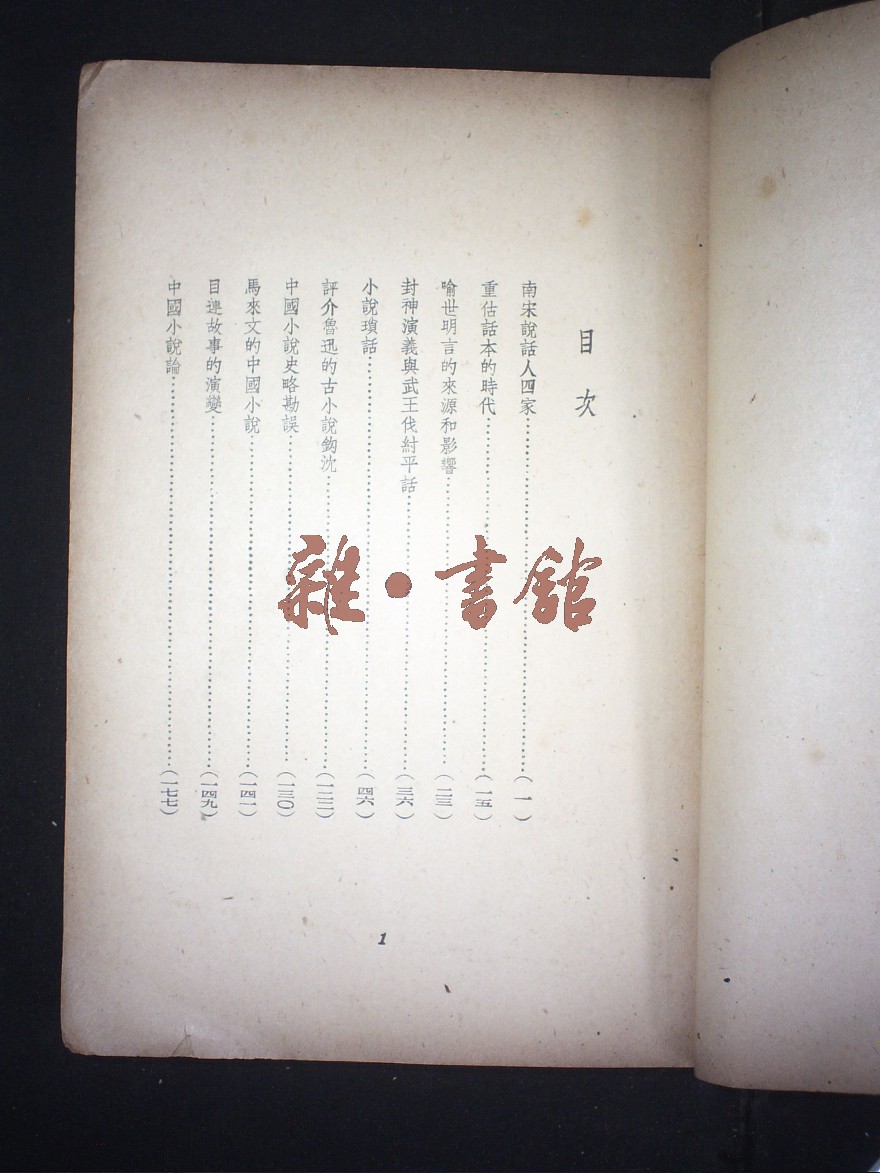 目次
南宋說話人四家……(一)
重估話本的時代……(一五)
喻世明言的來源和影響……(二三)
封神演義與武王伐紂平話……(三六)
小說瑣話……(四六)
評介魯迅的古小說鈎沈……(一二二)
中國小說史略勘誤……(一三〇)
馬來文的中國小說……(一四一)
目連故事的演變……(一四九)
中國小說論……(一七七)
1
雜·書館